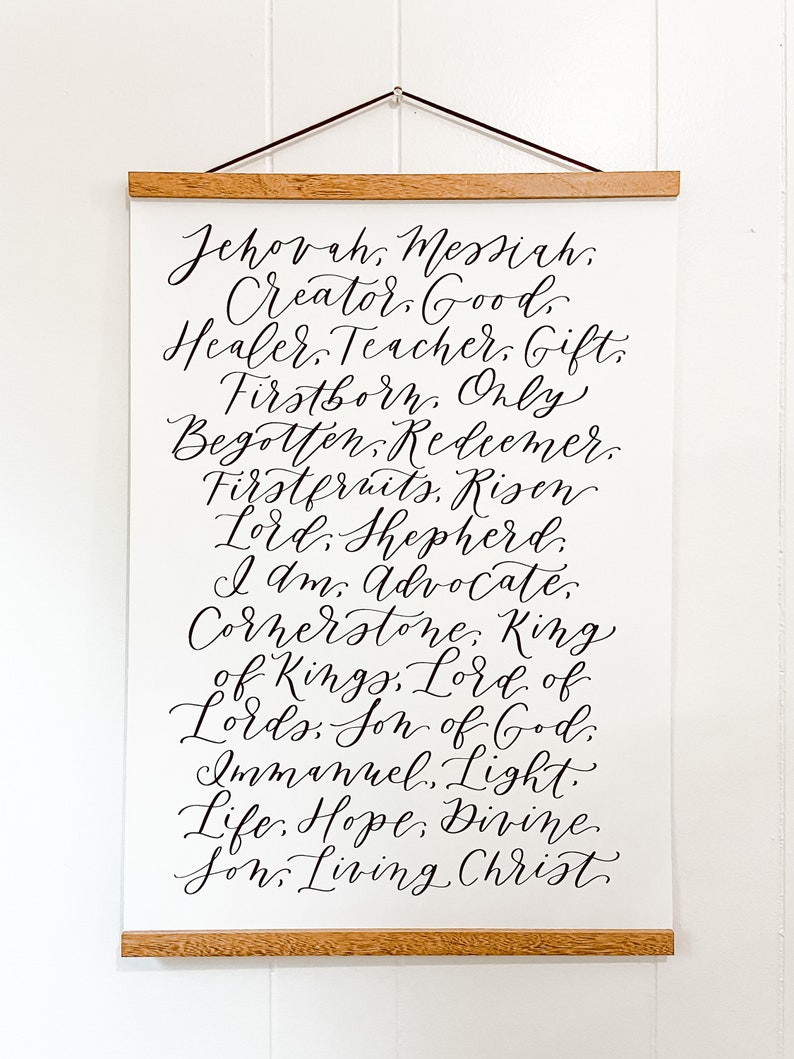 Jehovah, Messiah,
Creator, Good,
Healer, Teacher, Gift,
Firstborn, Only
Begotten, Redeemer,
Firstfruits, Risen
Lord, Shepherd,
I Am, Advocate,
Cornerstone, King
of Kings, Lord of
Lords, Son of God,
Immanuel, Light,
Life, Hope, Divine
Son, Living Christ